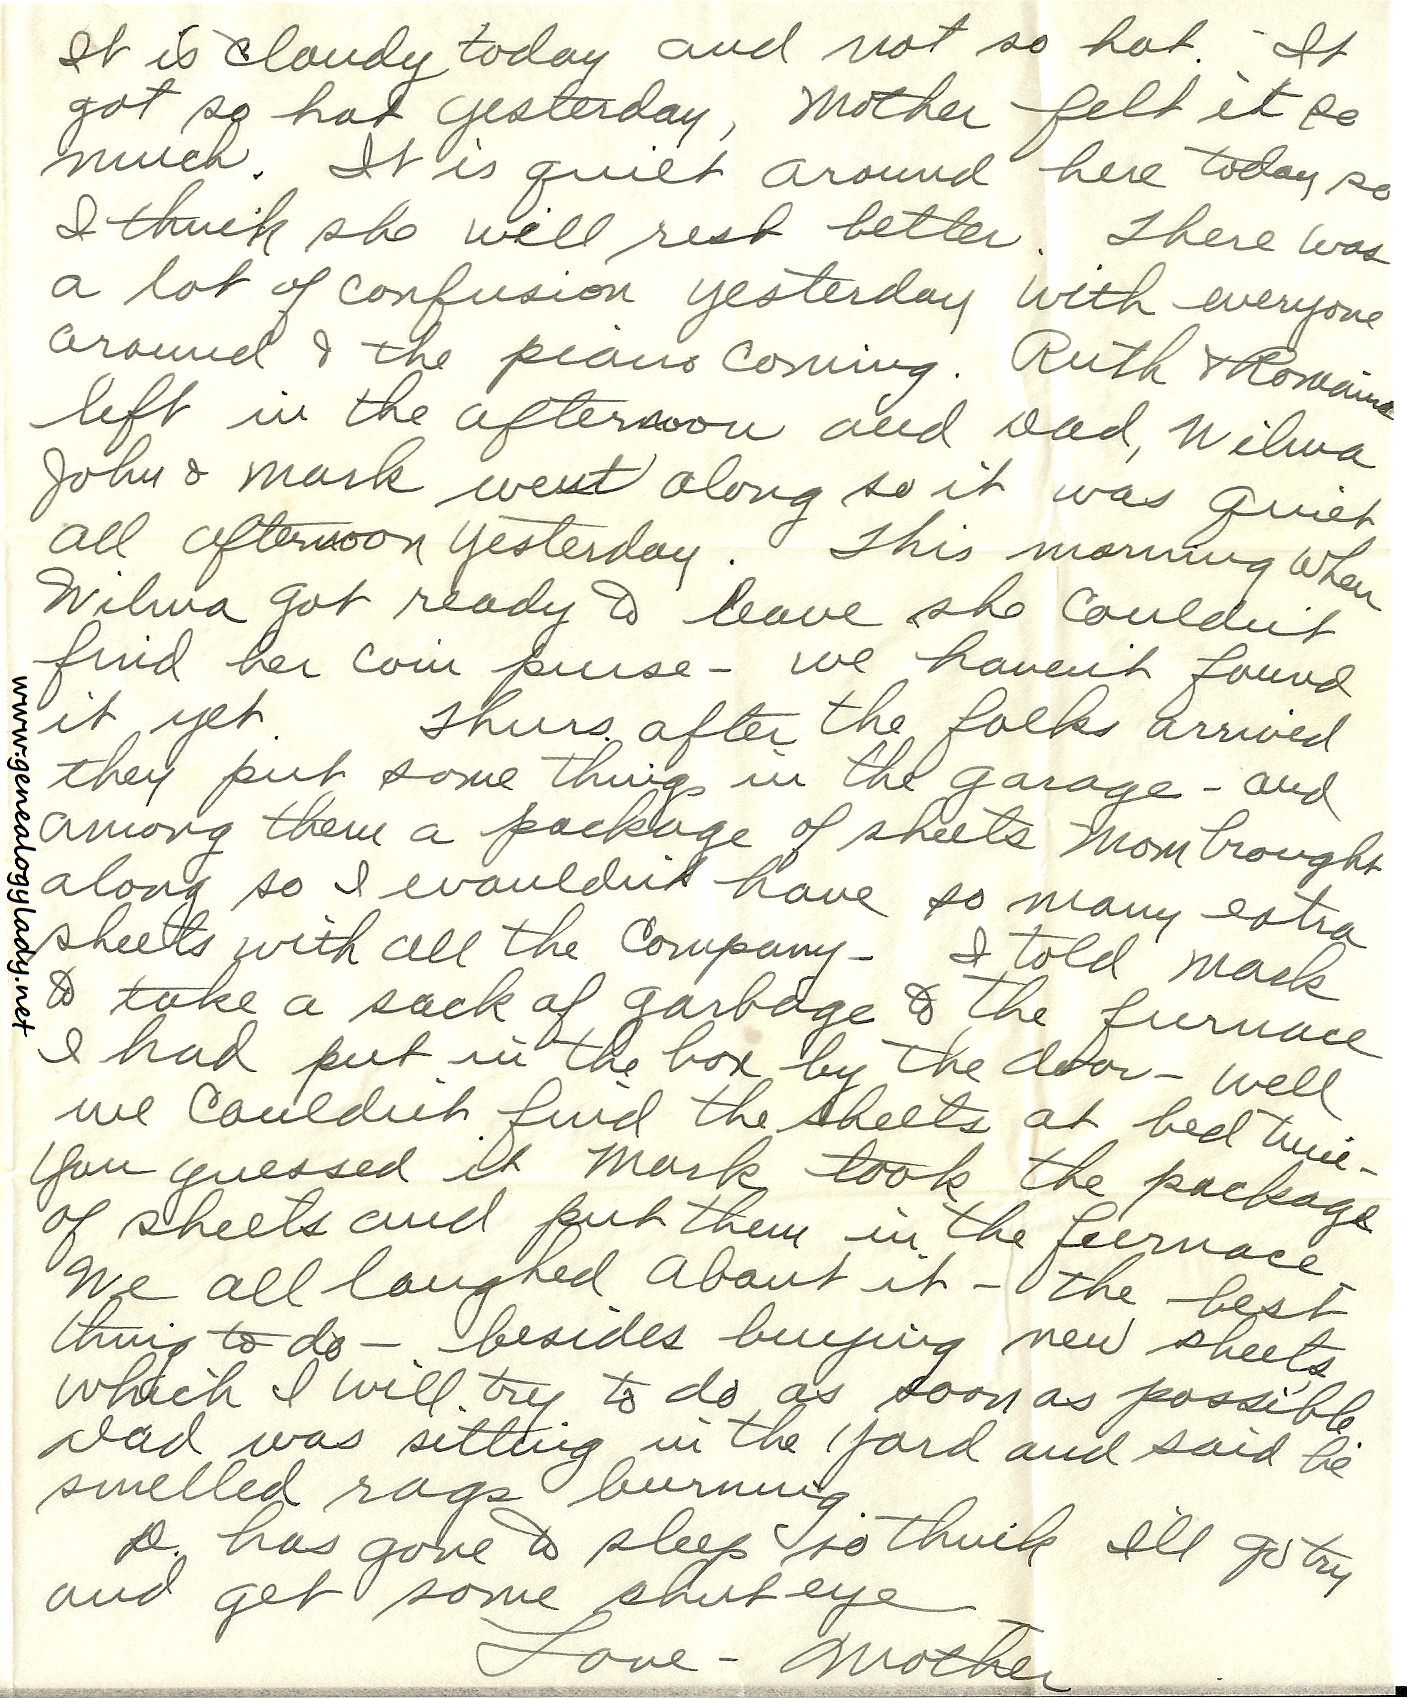 It is cloudy today and not so hot. - It
got so hot yesterday, Mother felt it so
much. It is quiet around here today so
I think she will rest better. There was
a lot of confusion yesterday with everyone
around & the piano coming. Ruth & Romaine
left in the afternoon and Dad, Wilma
John & Mark went along so it was quiet
all afternoon yesterday. This morning when
Wilma got ready to leave she couldn't
find her coin purse - we haven't found
it yet. Thurs. after the folks arrived
they put some things in the garage - and
among them a package of sheets Mom brought
along so I wouldn't have so many extra
sheets with all the company - I told Mark
to take a sack of garbage to the furnace
I had put in the box by the door - well
we couldn't find the sheets at bed time -
You guessed it Mark took the package
of sheets and put them in the furnace -
We all laughed about it - the best
thing to do - besides buying new sheets,
which I will try to do as soon as possible
Dad was sitting in the yard and said he
smelled rags burning.
D. has gone to sleep so think I'll go try
and get some shut eye
Love - Mother
www.genealogylady.net